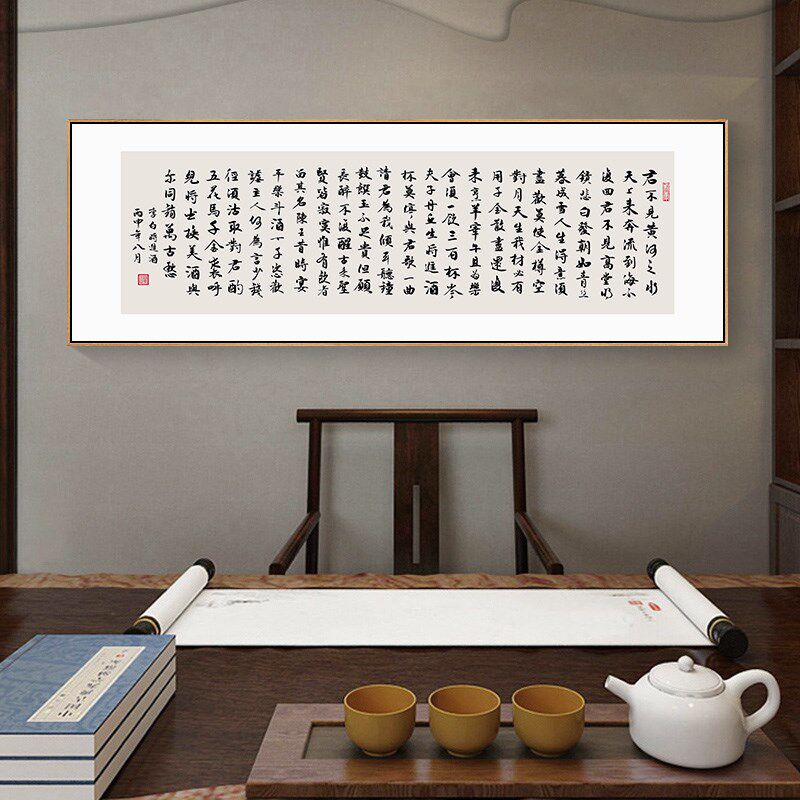 君不見黃河之水
天上来奔流到海不
復回君不見高堂明
鏡悲白發朝如青丝
暮成雪人生得意須
盡歡莫使金樽空
對月天生我材必有
用千金散盡還復
来烹羊宰牛且為樂
會須一飲三百杯岑
夫子丹丘生將進酒
杯莫停與君歌一曲
請君為我傾耳聽鐘
鼓饌玉不足貴但願
長醉不復醒古来聖
賢皆寂寞惟有飲者
留其名陳王昔時宴
平樂斗酒十千恣歡
謔主人何為言少錢
徑須沽取對君酌
五花馬千金裘呼
兒將出換美酒與
尔同銷萬古愁
李白將進酒
丙申年八月